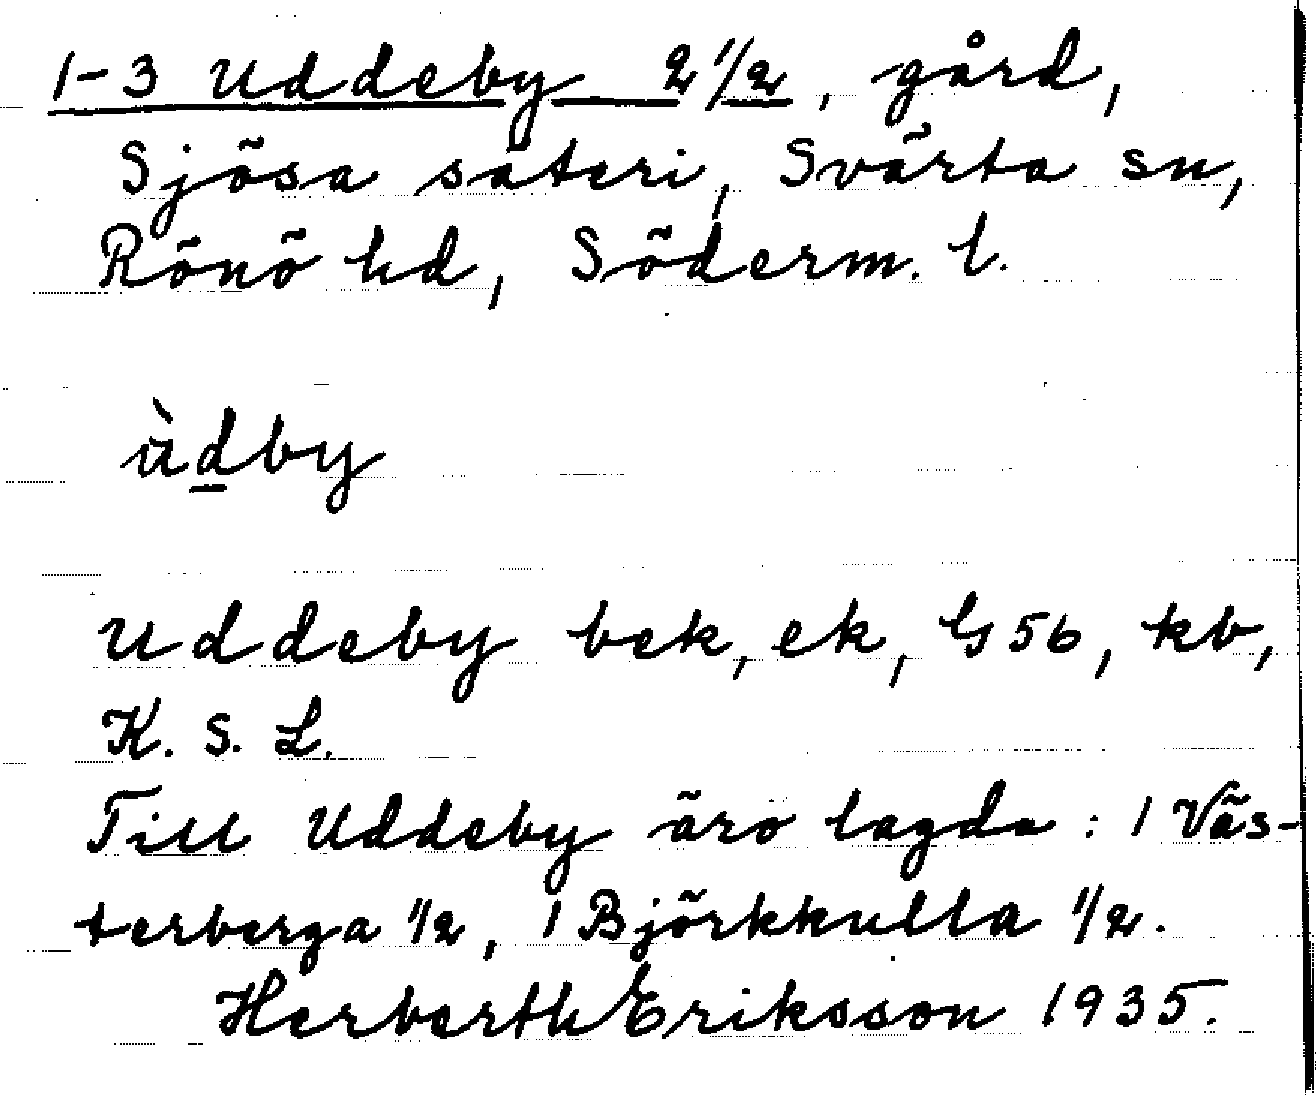 1-3 Uddeby 2 1/2, gård,
Sjösa säteri, Svärta sn,
Rönö hd, Söderm. l.
ùdby
Uddeby bek, ek, G 56, kb,
K. S. L.
Till Uddeby äro lagda: 1 Väs-
terberga 1/2, 1 Björkkulla 1/2.
Herberth Eriksson 1935.